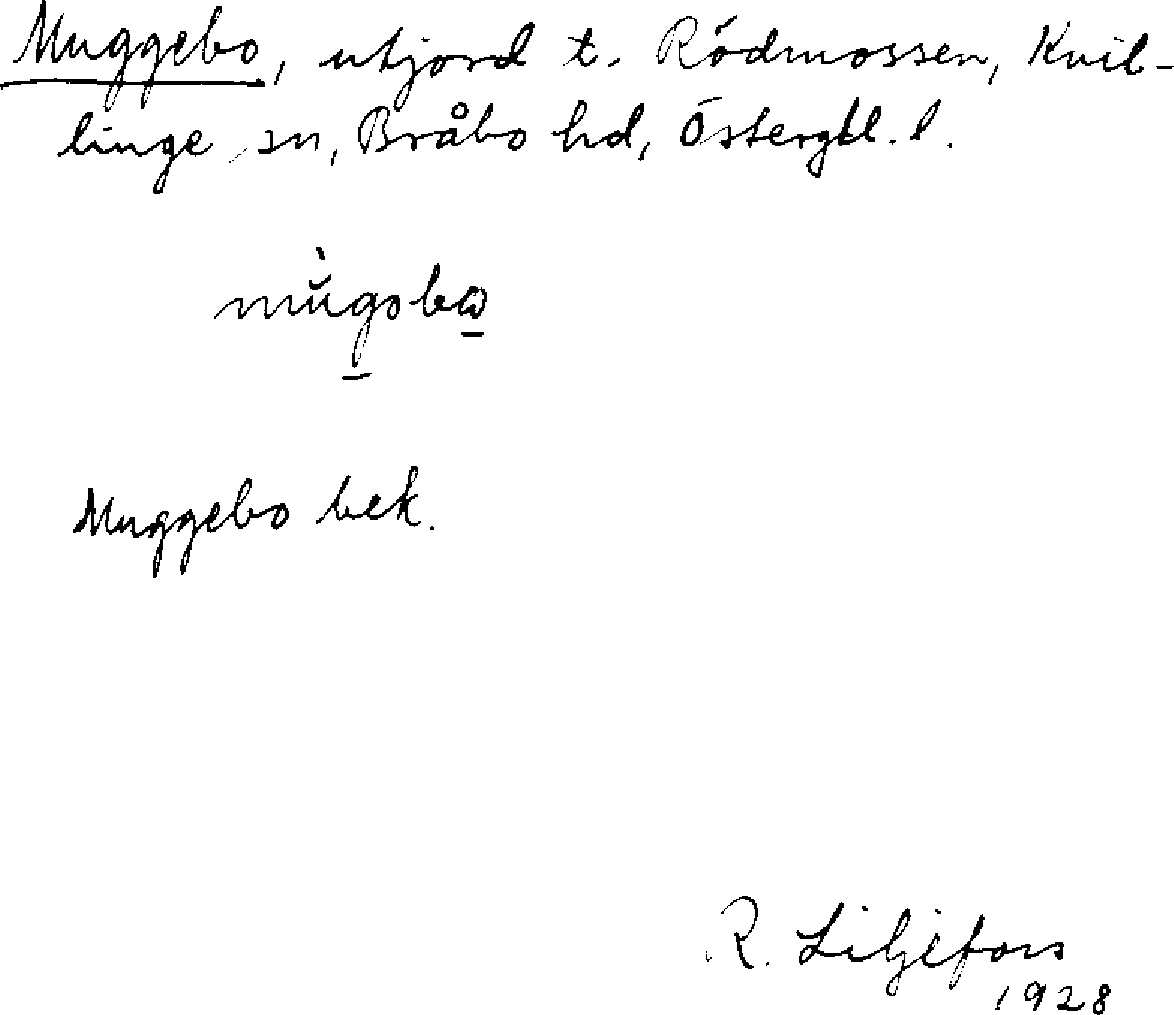 Muggebo, utjord t. Rödmossen, Kvil-
linge sn, Bråbo hd, Östergtl. l.
Muggebo bek.
R. Liljefors
1928